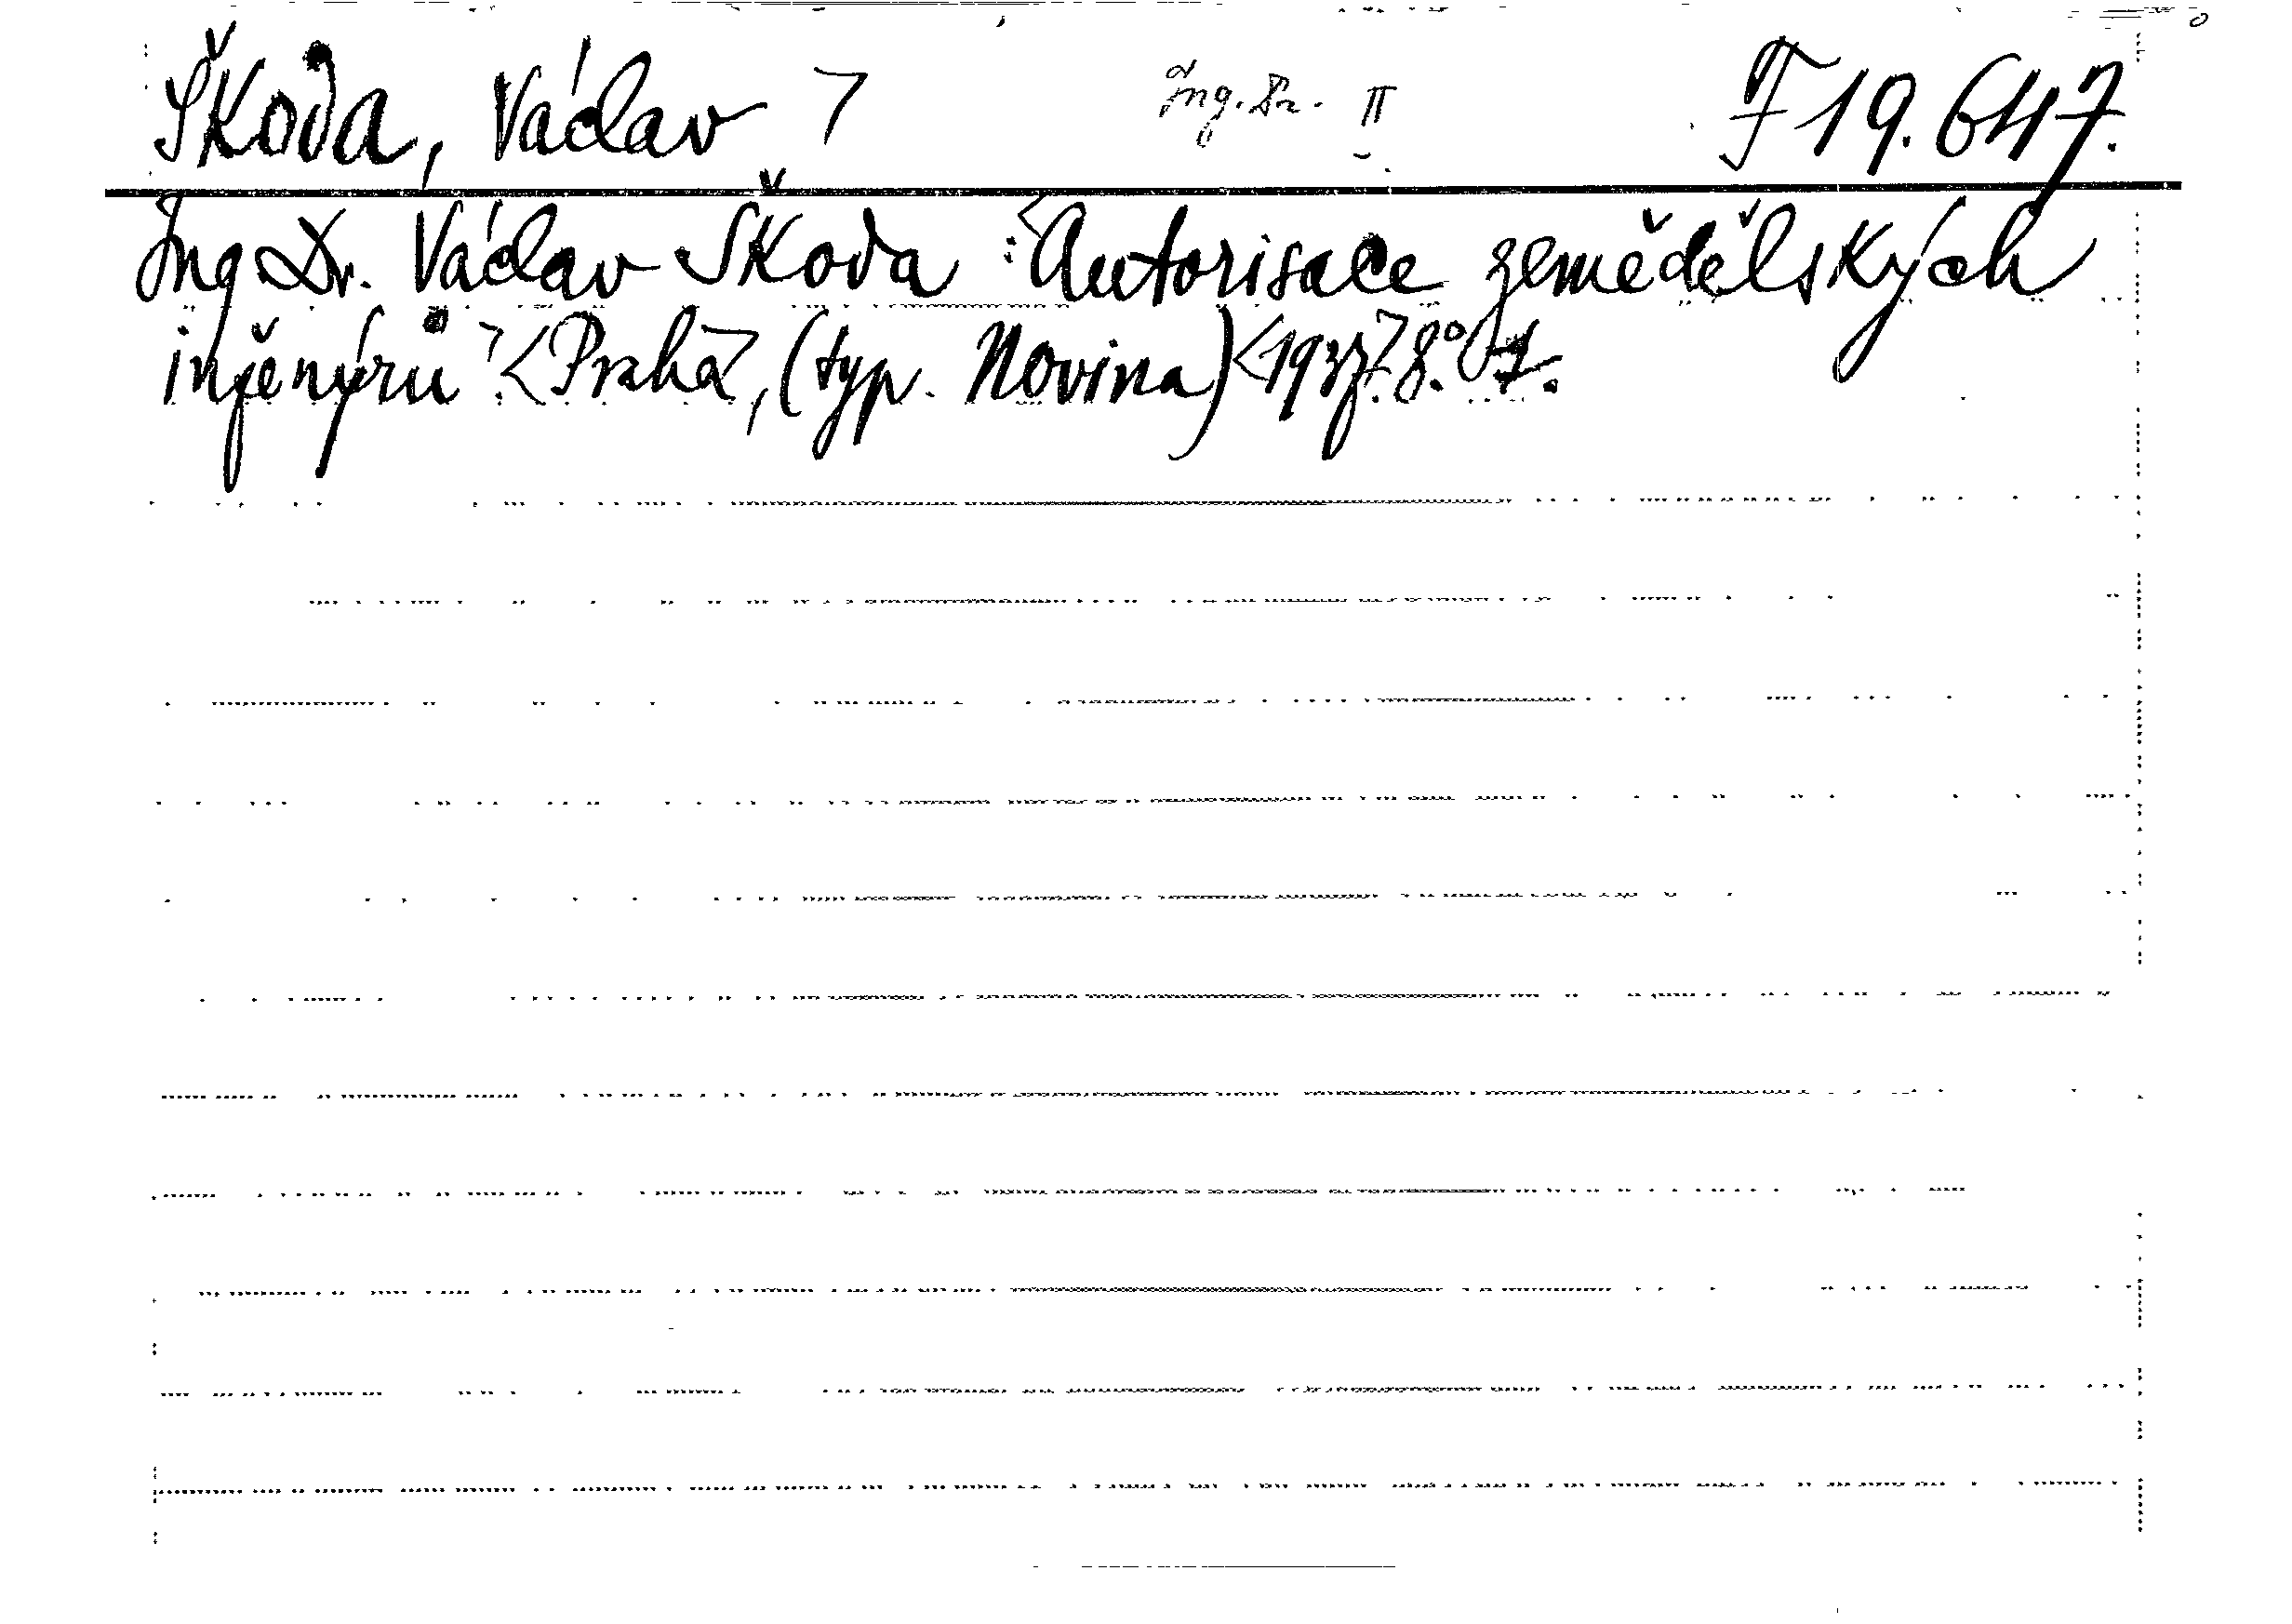 Škoda, Václav > Ing. Dr. II F 19.647.
Ing Dr. Václav Škoda : <Autorisace zemědělských
inženýrů >. <Praha>, (typ. Novina) <1937>. 8.° 7.